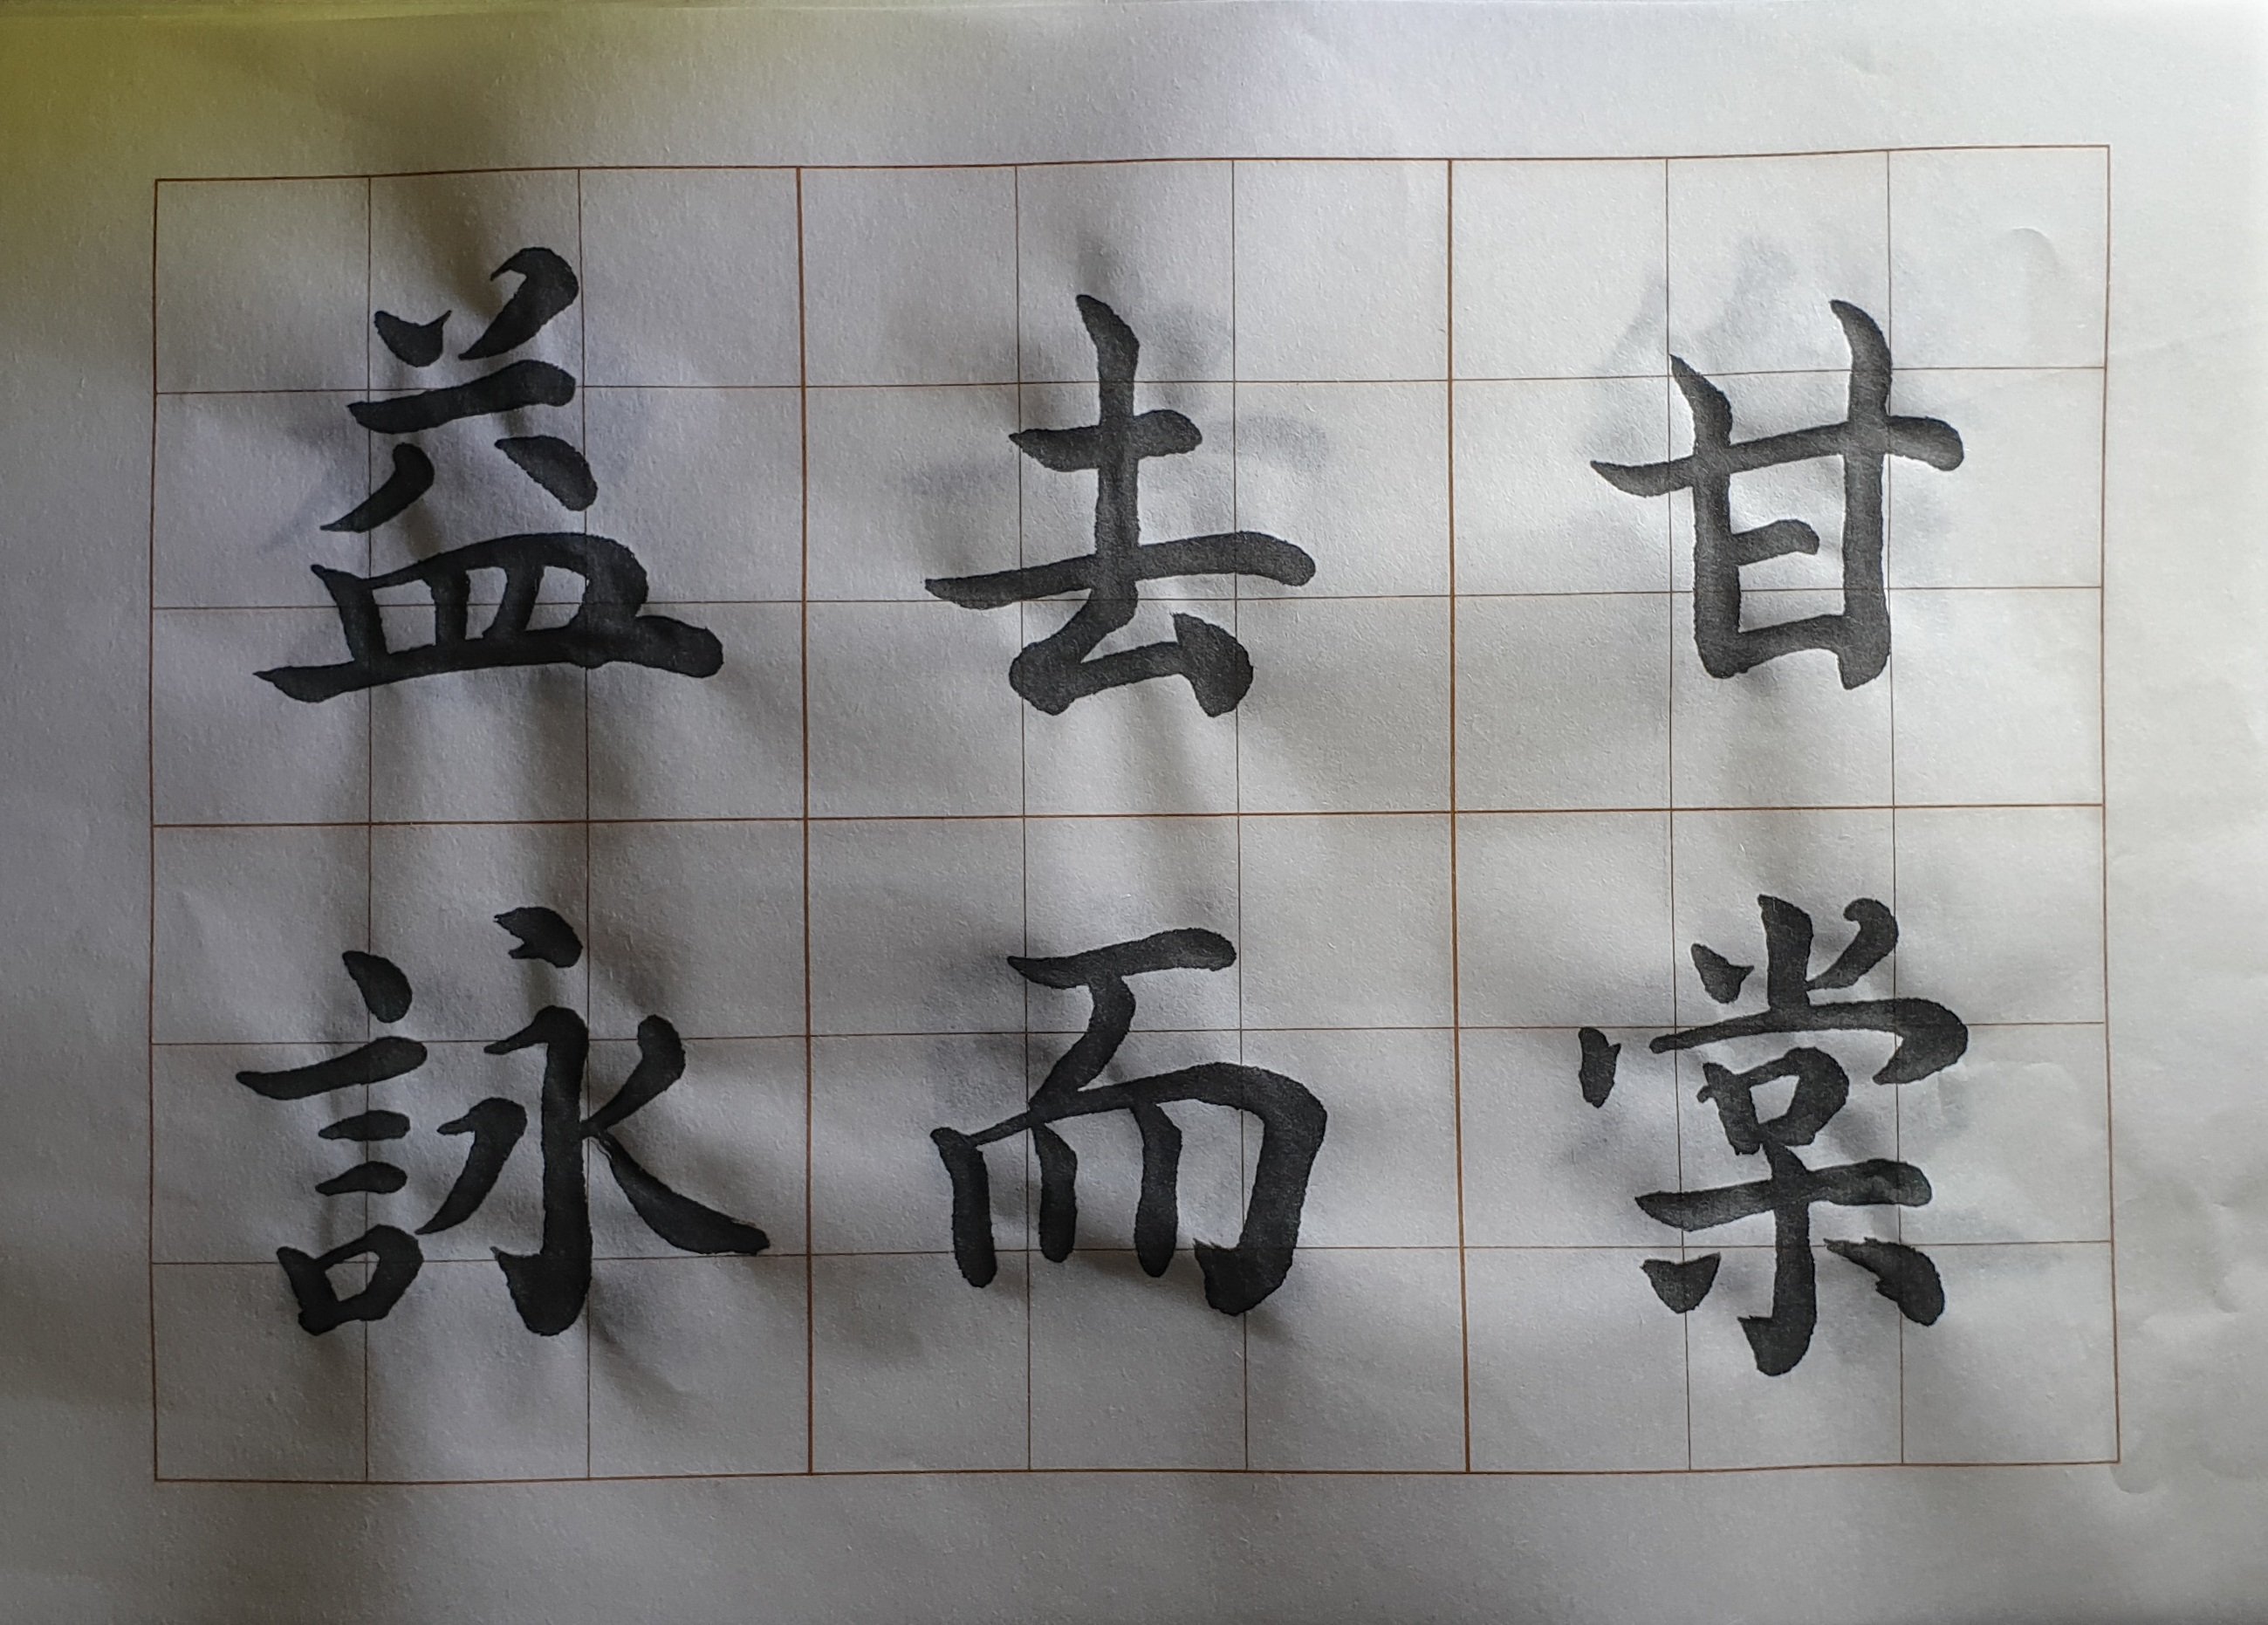 甘棠
去而
益詠